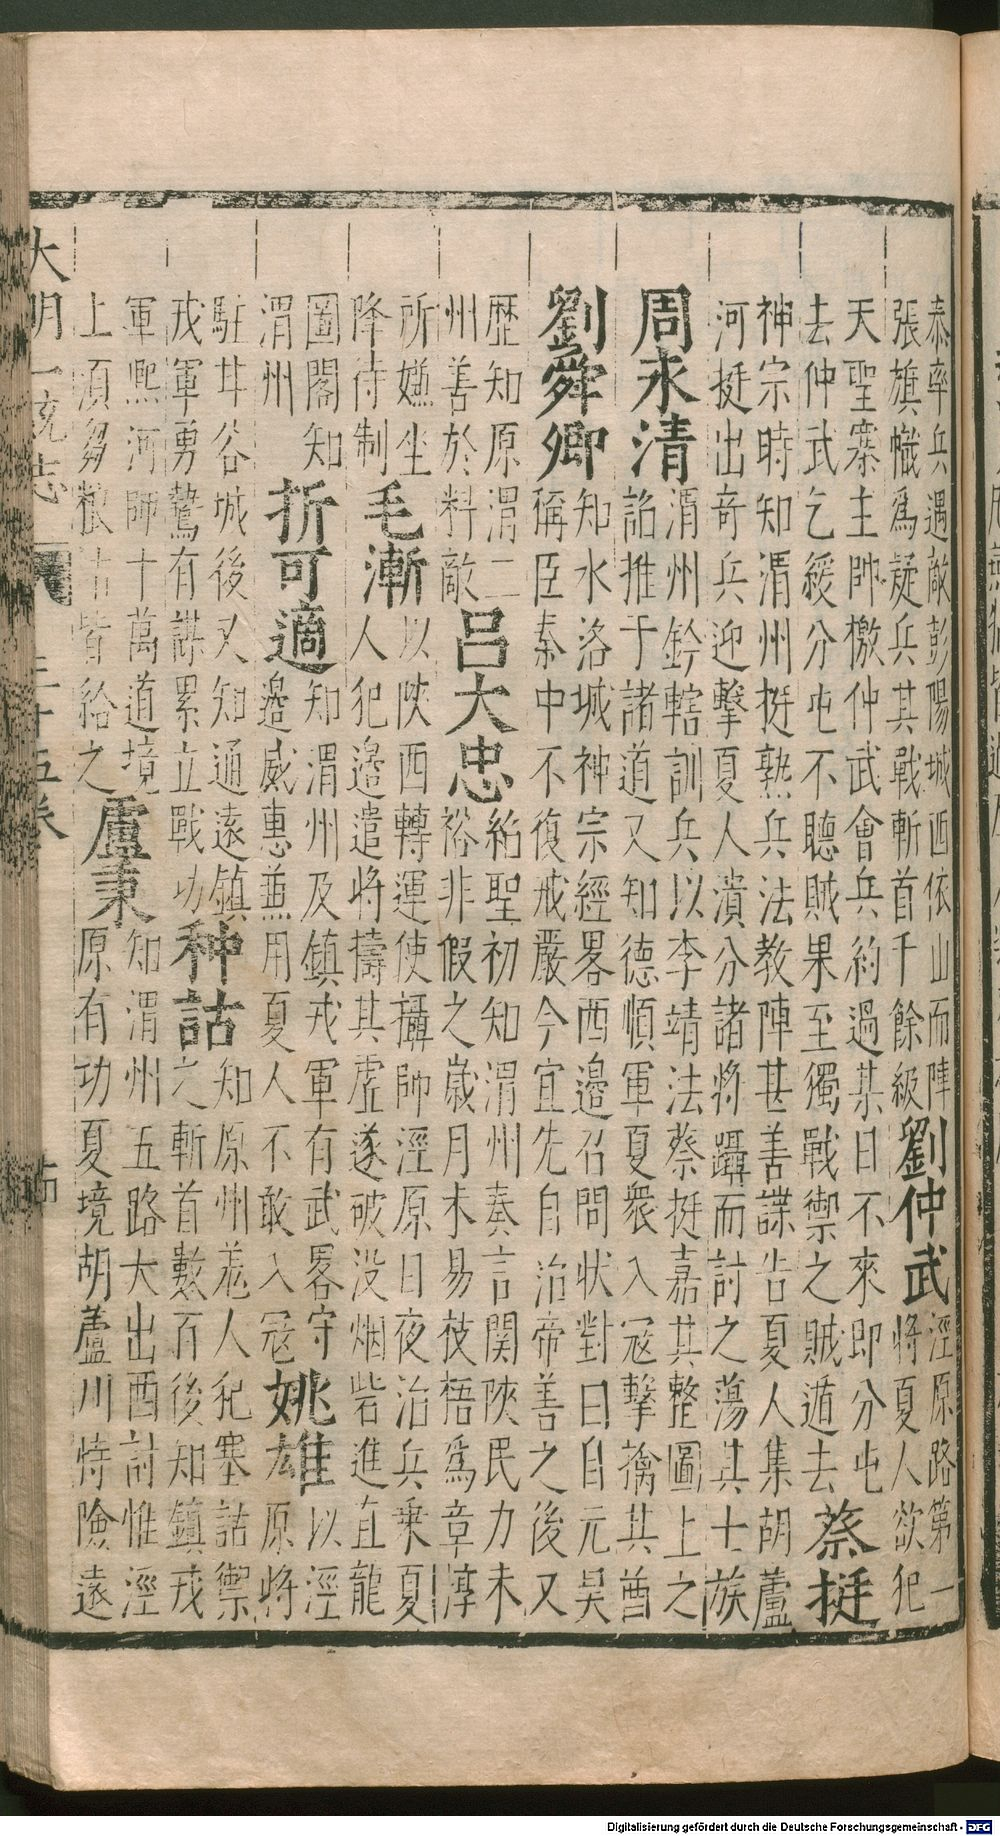 泰率兵遇敵彭陽城西依山而陣
張旗幟爲疑兵其戰斬首千餘級
劉仲武
涇原路第一
將夏人欲犯
天聖寨主帥檄仲武會兵約過某日不來即分屯
去仲武乞緩分屯不聽賊果至獨戰禦之賊遁去
蔡挺
神宗時知渭州挺熟兵法教陣甚善諜告夏人集胡蘆
河挺出奇兵迎擊夏人潰分諸將躡而討之蕩其七族
周永清
渭州鈐轄訓兵以李靖法蔡挺嘉其整圖上之
詔推于諸道又知德順軍夏衆入寇擊擒其酋
劉舜卿
知水洛城神宗經畧西邊召問狀對曰自元昊
稱臣秦中不復戒嚴今宜先自治帝善之後又
歷知原渭二
州善於料敵
呂大忠
紹聖初知渭州奏言関陝民力未
裕非假之歲月未易枝梧爲章淳
所嫌坐
降待制
毛漸
以陜西轉運使攝帥涇原日夜治兵乗夏
人犯邉遣將擣其虛遂破没烟砦進直龍
圖閣知
渭州
折可適
知渭州及鎮戎軍有武畧守
邉威惠兼用夏人不敢入寇
姚雄
以涇
原將
駐井谷城後又知通遠鎮
戎軍勇鷙有謀累立戰功
种詁
知原州羗人犯塞詁禦
之斬首數百後知鎮戎
軍熙河師十萬道境
上須芻粮詁皆給之
盧秉
知渭州五路大出西討惟涇
原有功夏境胡蘆川恃險遠
大明一統志
三十五卷
Digitalisierung gefördert durch die Deutsche Forschungsgemeinschaft - DFG